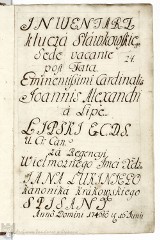 INWENTARZ
klucza Sławkowskie°
Sede vacante
post Fata
Eminentissimi Cardinalis
Joannis Alexandri
à Lipe
LIPSKI
za Regencyi
Wielmożnego Imci Xdza
JANA
kanonika krakowskiego
SPISANY
Anno Domini 1746